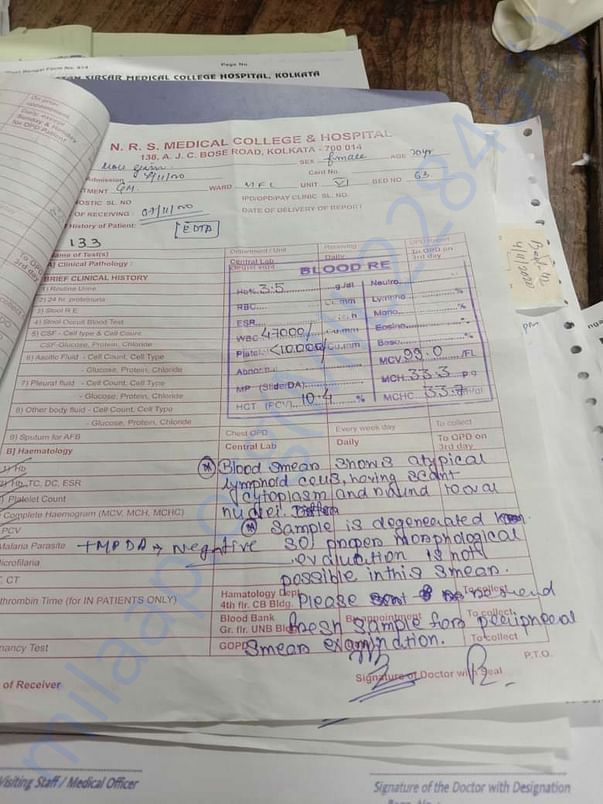 Page No
SIRCAR MEDICAL COLLEGE HOSPITAL, KOLKATA
N. R. S. MEDICAL COLLEGE & HOSPITAL
138, A. J. C. BOSE ROAD, KOLKATA - 700 014
SEX female AGE 70yr
Card No.
WARD MFL UNIT VI BED NO 63
TMENT GM
OSTIC SL. NO IPD/OPD/PAY CLINIC SL. NO.
OF RECEIVING : DATE OF DELIVERY OF REPORT
History of Patient: EDTA
133
Name of Test(s) Department / Unit Receiving
A) Clinical Pathology : Central Lab Daily To OPD on
3rd day
BRIEF CLINICAL HISTORY
1) Routine Urine
2) 24 hr. proteinuria
3) Stool R.E
4) Stool Occult Blood Test
5) CSF - Cell type & Cell Count
CSF-Glucose, Protein, Chloride
6) Ascitic Fluid - Cell Count, Cell Type
- Glucose, Protein, Chloride
7) Pleural fluid - Cell Count, Cell Type
- Glucose, Protein, Chloride
8) Other body fluid - Cell Count, Cell Type
- Glucose, Protein, Chloride
9) Sputum for AFB Chest OPD Every week day To collect
BLOOD RE
Hb% 3.5 g/dl Neutro %
RBC Cu.mm Lympho %
ESR Mono %
WBC 47000/ Cu.mm Eosino %
Platelet <10,000/ Cu.mm Baso %
MCV 93.0 /FL
MP (Slide/DA) MCH 33.3 P.g
HCT (PCV) 10.4 % MCHC 33.7 m/dl
B] Haematology Central Lab Daily To OPD on
3rd day
1) Hb
2) Hb, TC, DC, ESR
Platelet Count
Complete Haemogram (MCV, MCH, MCHC)
PCV
Blood smear shows atypical
lymphoid cells, having scant
cytoplasm and round to oval
nuclei.
Sample is degenerated
so, proper morphological
evaluation is not
possible in this smear.
Please send
fresh sample for peripheral
smear examination.
Malaria Parasite + MPDA → Negative
Microfilaria
, CT
thrombin Time (for IN PATIENTS ONLY) Hamatology Dept. To collect
4th flr. CB Bldg.
Blood Bank By appointment To collect
Gr. flr. UNB Bldg
nancy Test GOPD To collect
P.T.O.
of Receiver Signature of Doctor with Seal
milaap
Visiting Staff / Medical Officer Signature of the Doctor with Designation